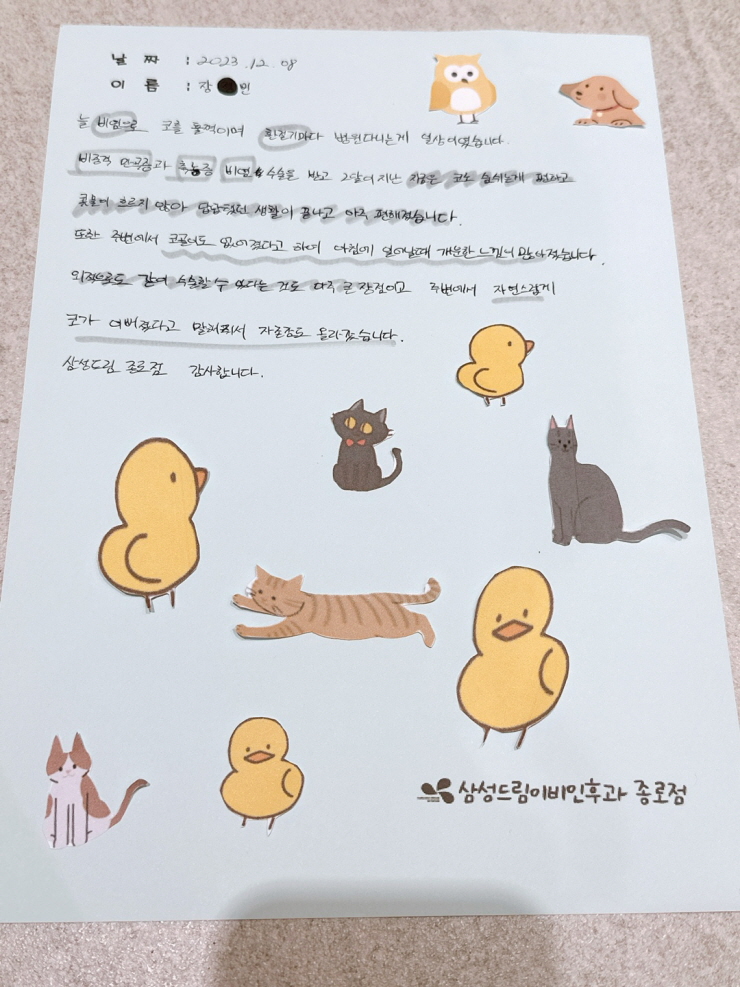 날 짜 : 2023.12.08
이 름 : 장 민
늘 비염으로 코를 훌쩍이며 환절기마다 병원다니는게 일상이였습니다.
비중격 만곡증과 축농증 비염 수술을 받고 2달이 지난 지금은 코로 숨쉬는게 편하고
콧물이 흐르지 않아 답답했던 생활이 끝나고 아주 편해졌습니다.
또한 주변에서 코골이도 없어졌다고 하며 아침에 일어날때 개운한 느낌이 많아졌습니다.
외적으로도 같이 수술할 수 있다는 것도 아주 큰 장점이고 주변에서 자연스럽게
코가 예뻐졌다고 말해줘서 자존감도 올라갔습니다.
삼성드림 종로점 감사합니다.
삼성드림이비인후과 종로점